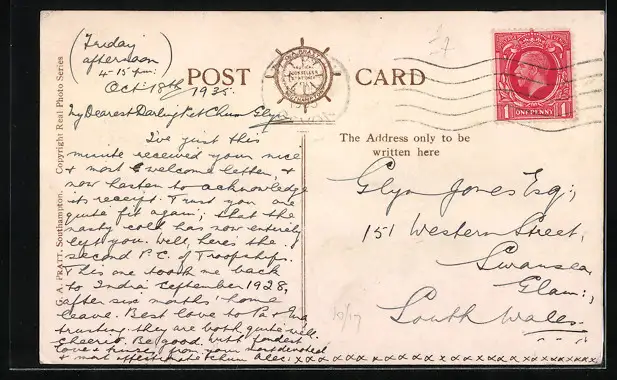 (Friday
afternoon
4-15 pm.)
Oct: 18th 1935.
POST CARD
G. A. PRATT
BOOKSELLER
SOUTHAMPTON
ONE PENNY
1 1
Copyright Real Photo Series
G. A. PRATT, Southampton.
My Dearest Darling Pet Chum Glyn,
I've just this
minute received your nice
& most welcome letter, &
now hasten to acknowledge
its receipt. Trust you are
quite fit again, & that the
nasty cold has now entirely
left you. Well, here's the
second P.C. of Troopships.
This one took me back
to India September 1928,
after six months' home
leave. Best love to Pa & Ma
trusting they are both quite well.
Cheerio. Be good. With fondest
love & kisses from your most devoted
& most affectionate Chum Alec: x x x x x x x x x x x x x x x x x x x x x x
The Address only to be
written here
Glyn Jones Esq:,
151 Western Street,
Swansea,
Glam:,
South Wales.